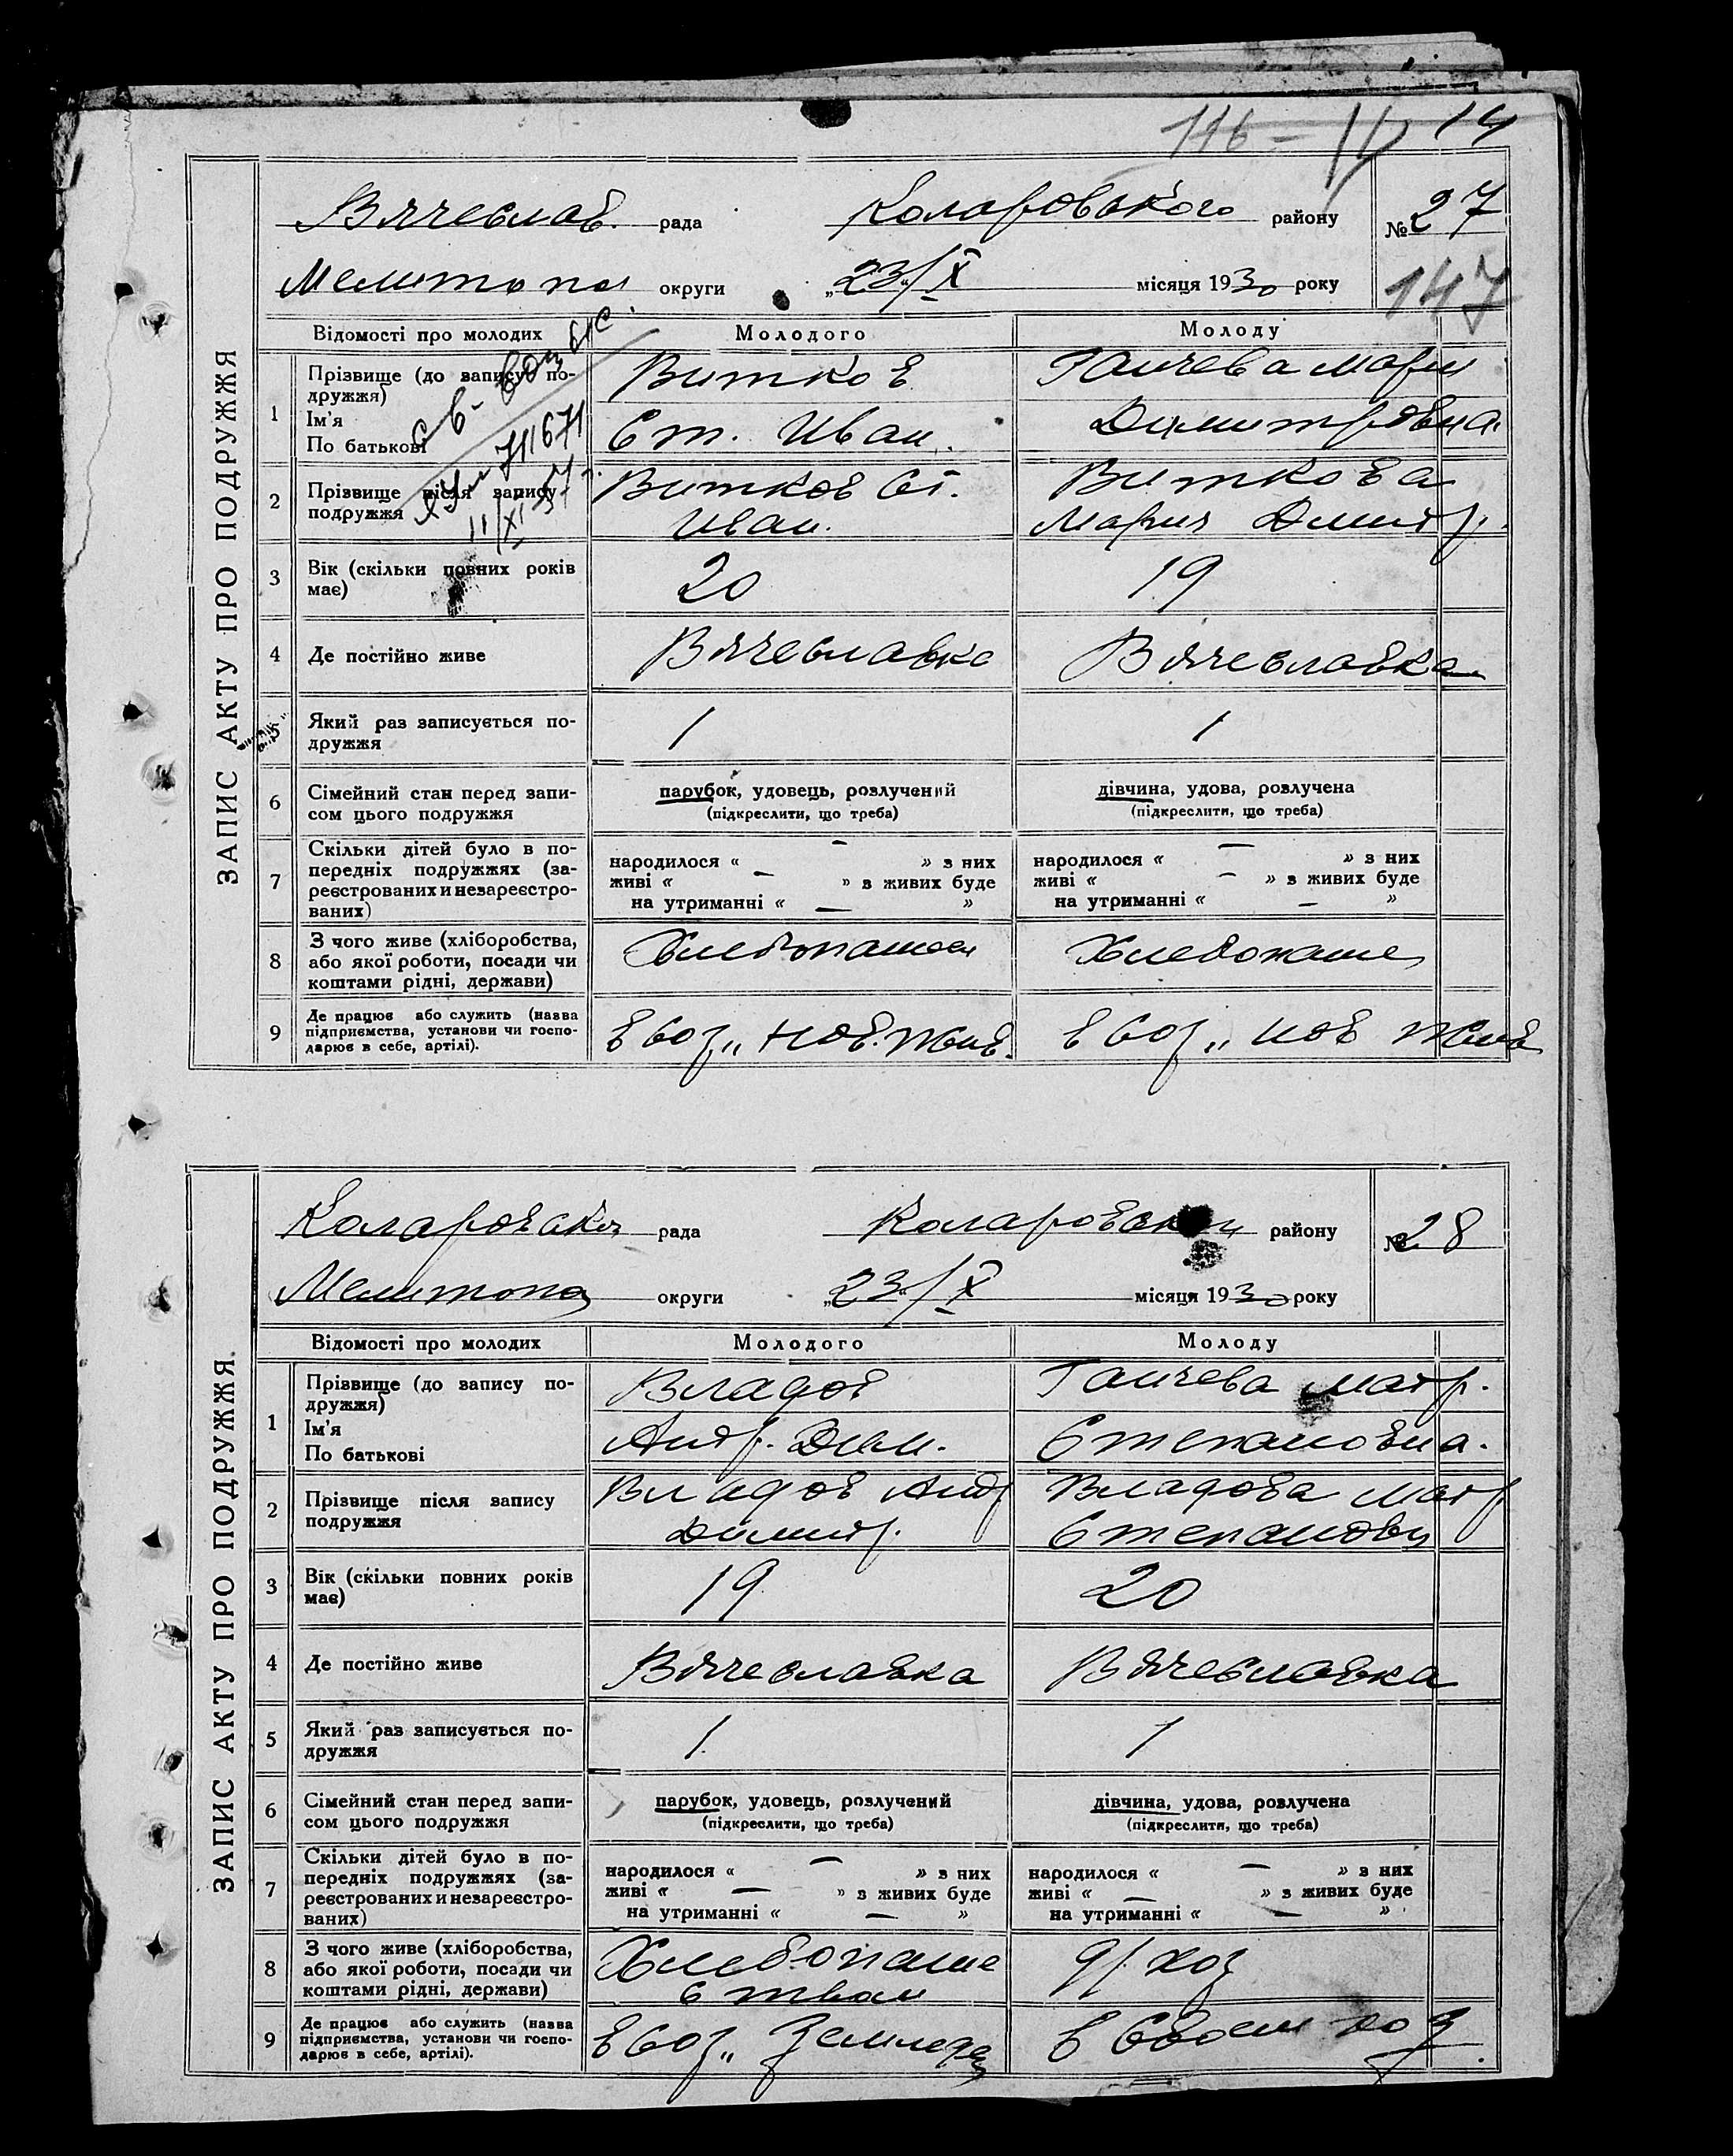 14
ЗАПИС АКТУ ПРО ПОДРУЖЖЯ
Вячеслав. рада Коларовського району № 27
Мелитопол округи „23“/X місяця 1930 року
147
Відомості про молодих Молодого Молоду
1 Прізвище (до запису по-
дружжя)
Ім'я
По батькові
Витков
Ст. Иван.
Ганчева Мария
Димитровна.
С в- выс.
711671
11/XI
2 Прізвище після запису
подружжя
Витков Ст.
Иван.
Виткова
Мария Дмитр.
3 Вік (скільки повних років
має)
20 19
4 Де постійно живе Вячеславка Вячеславка
5 Який раз записується по-
дружжя
1 1
6 Сімейний стан перед запи-
сом цього подружжя
парубок, удовець, розлучений
(підкреслити, що треба)
дівчина, удова, розлучена
(підкреслити, що треба)
7 Скільки дітей було в по-
передніх подружжях (за-
реєстрованих и незареєстро-
ваних)
народилося « — » з них
живі « — » з живих буде
на утриманні « — »
народилося « — » з них
живі « — » з живих буде
на утриманні « — »
8 З чого живе (хліборобства,
або якої роботи, посади чи
коштами рідні, держави)
Хлебопаше
9 Де працює або служить (назва
підприємства, установи чи госпо-
дарює в себе, артілі).
в соз „ Нов. Жив.
в соз „ Нов Жив
ЗАПИС АКТУ ПРО ПОДРУЖЖЯ.
Коларовская рада Коларовский району № 28
Мелитопол округи „23“/X місяця 1930 року
Відомості про молодих Молодого Молоду
1 Прізвище (до запису по-
дружжя)
Ім'я
По батькові
Владов
Андр. Дим.
Ганчева Матр.
Степановна.
2 Прізвище після запису
подружжя
Владов Андр
Димитр.
Владова Матр.
Степановн
3 Вік (скільки повних років
має)
19 20
4 Де постійно живе Вячеславка Вячеславка
5 Який раз записується по-
дружжя
1. 1
6 Сімейний стан перед запи-
сом цього подружжя
парубок, удовець, розлучений
(підкреслити, що треба)
дівчина, удова, розлучена
(підкреслити, що треба)
7 Скільки дітей було в по-
передніх подружжях (за-
реєстрованих и незареєстро-
ваних)
народилося « — » з них
живі « — » з живих буде
на утриманні « — »
народилося « — » з них
живі « — » з живих буде
на утриманні « — »
8 З чого живе (хліборобства,
або якої роботи, посади чи
коштами рідні, держави)
Хлебопаше
ством
д/хоз
9 Де працює або служить (назва
підприємства, установи чи госпо-
дарює в себе, артілі).
в соз „ Земледел
в своем хоз.